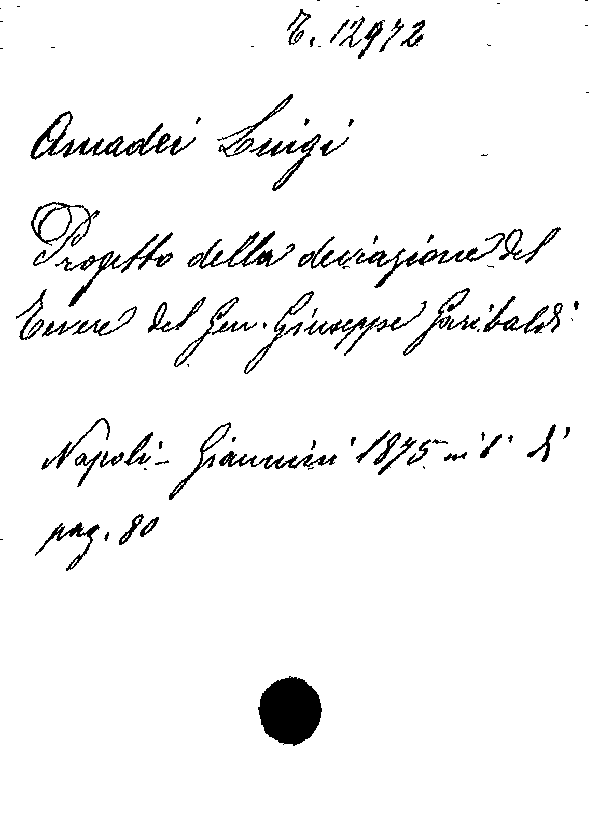 T. 12972
Amadei Luigi
Progetto della deviazione del
Tevere del Gen. Giuseppe Garibaldi
Napoli - Giannini 1875 in 8° di
pag. 80